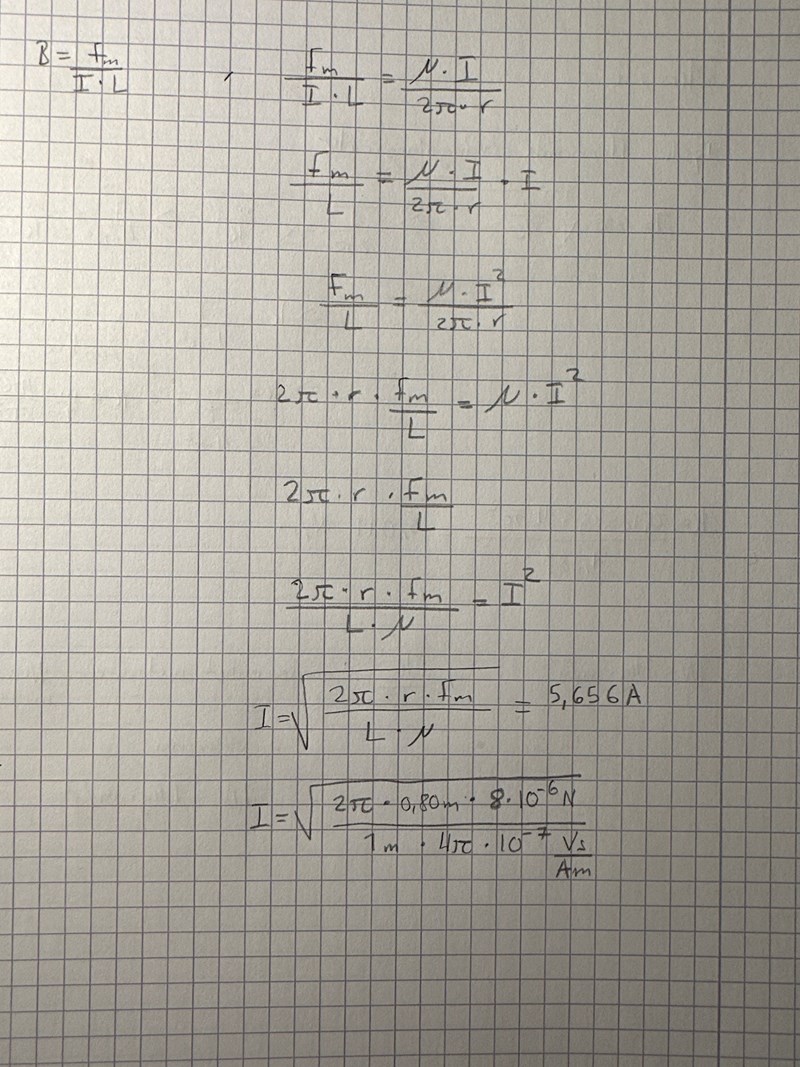 B = fm / (I · L) , fm / (I · L) = μ · I / (2π · r)
fm / L = μ · I / (2π · r) · I
Fm / L = μ · I² / (2π · r)
2π · r · fm / L = μ · I²
2π · r · fm / L
2π · r · fm / (L · μ) = I²
I = √(2π · r · fm / (L · μ)) = 5,656A
I = √(2π · 0,80m · 8·10⁻⁶N / (1m · 4π · 10⁻⁷ Vs/Am))